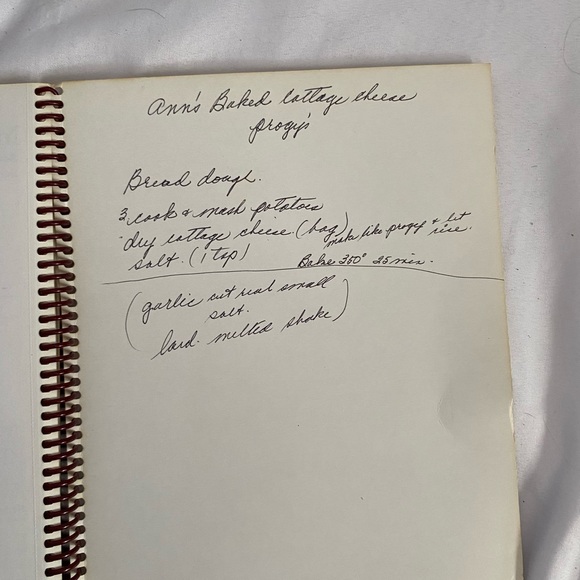 Ann's Baked Cottage Cheese
progy's
Bread dough.
3 cook & mash potatoes
dry cottage cheese (bag)
make like progy & let rise.
salt. (1 tsp)
Bake 350° 25 min.
(garlic cut real small
salt.
lard. melted shake)